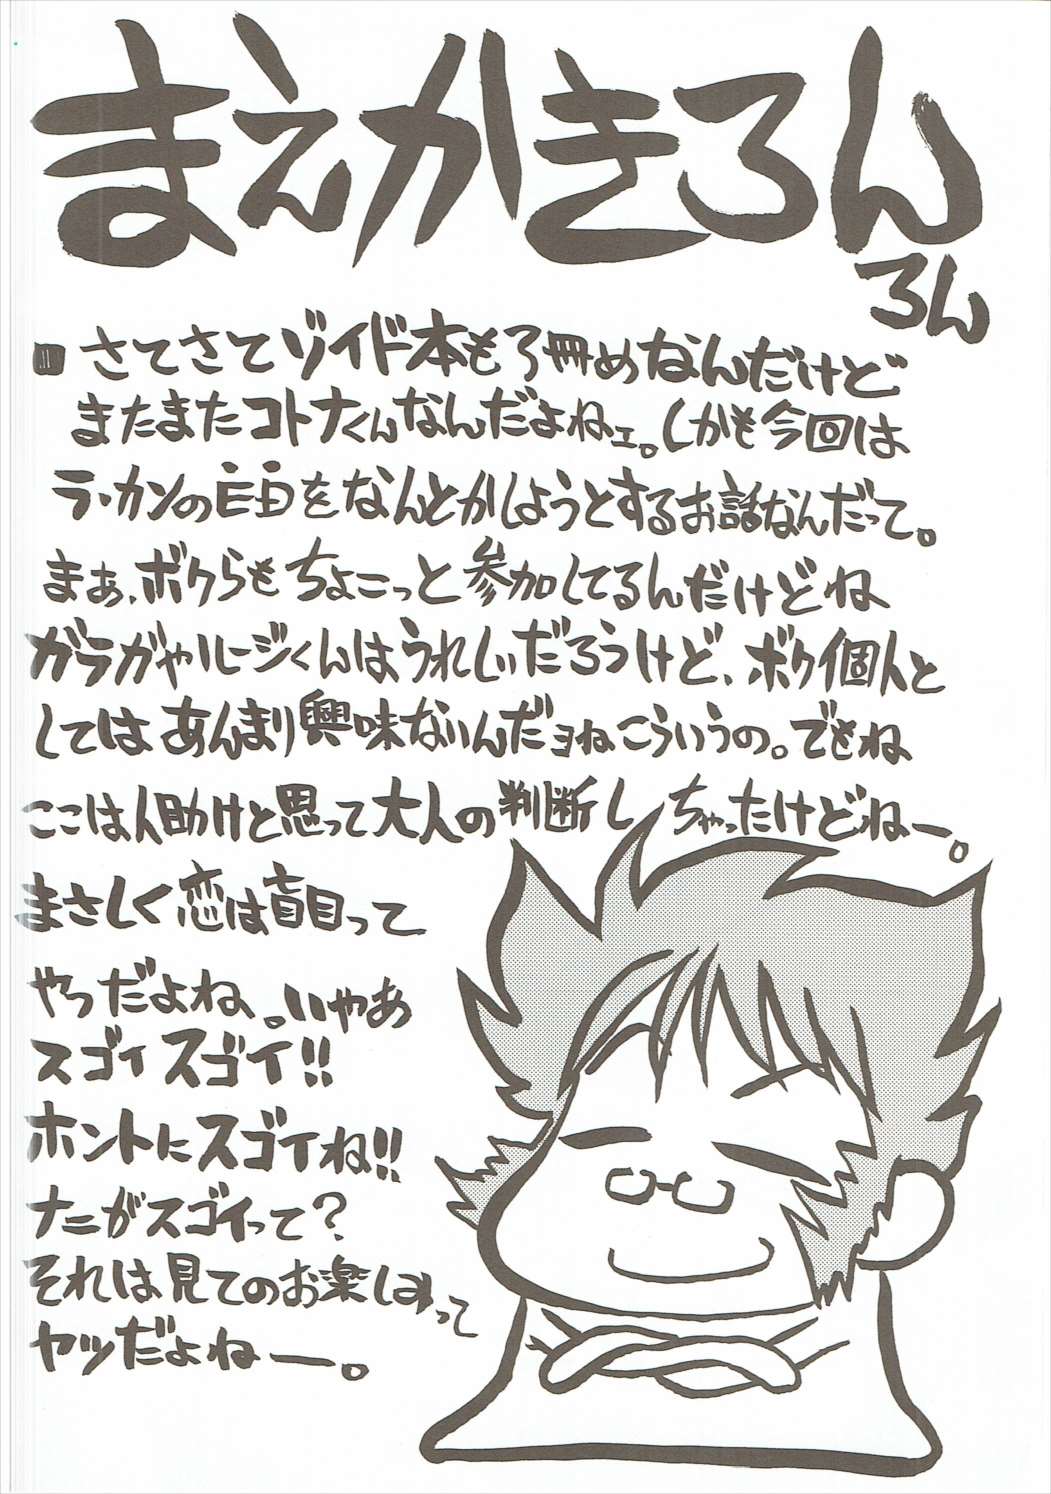 まえがきろん
ろん
■さてさてゾイド本も3冊めなんだけど
またまたコトナくんなんだよねェ。しかも今回は
ラ・カンの自由をなんとかしようとするお話なんだって。
まぁ、ボクらもちょこっと参加してるんだけどね
ガラガやルージくんはうれしいだろうけど、ボク個人と
してはあんまり興味ないんだョねこういうの。でもね
ここは人助けと思って大人の判断しちゃったけどねー。
まさしく恋は盲目って
やつだよね、。いやあ
スゴイスゴイ!!
ホントにスゴイね!!
ナニがスゴイって?
それは見てのお楽しみって
ヤツだよねー。